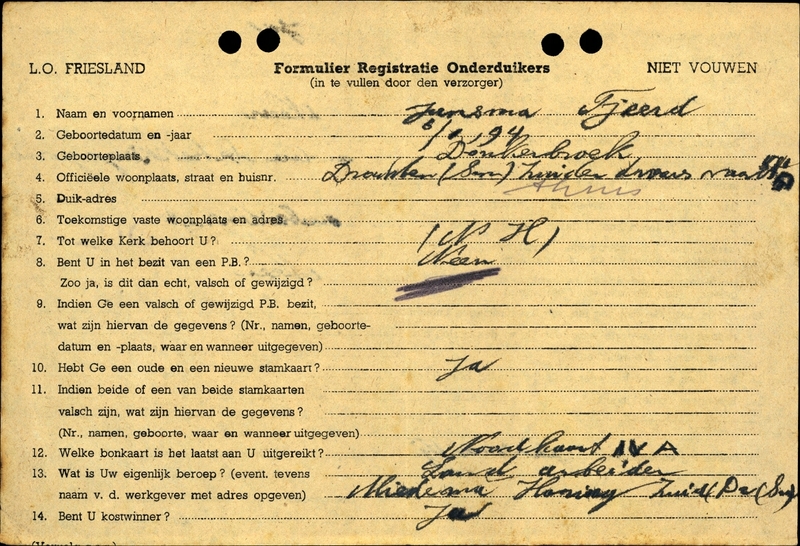 L.O. FRIESLAND Formulier Registratie Onderduikers NIET VOUWEN
(in te vullen door den verzorger)
1. Naam en voornamen Junsma Tjeerd
2. Geboortedatum en -jaar
3. Geboorteplaats. Donkerbroek
4. Officiëele woonplaats, straat en huisnr. Drachten (Sm) Zuider dwars vaart
5. Duik-adres thuis
6. Toekomstige vaste woonplaats en adres
7. Tot welke Kerk behoort U? (N H)
8. Bent U in het bezit van een P.B.? Neen
Zoo ja, is dit dan echt, valsch of gewijzigd?
9. Indien Ge een valsch of gewijzigd P.B. bezit,
wat zijn hiervan de gegevens? (Nr., namen, geboorte-
datum en -plaats, waar en wanneer uitgegeven)
10. Hebt Ge een oude en een nieuwe stamkaart? Ja
11. Indien beide of een van beide stamkaarten
valsch zijn, wat zijn hiervan de gegevens?
(Nr., namen, geboorte, waar en wanneer uitgegeven)
12. Welke bonkaart is het laatst aan U uitgereikt? Noodkaart IV A
13. Wat is Uw eigenlijk beroep? (event. tevens Land arbeider
naam v. d. werkgever met adres opgeven) Miedema Zuid (Sm)
14. Bent U kostwinner? Ja